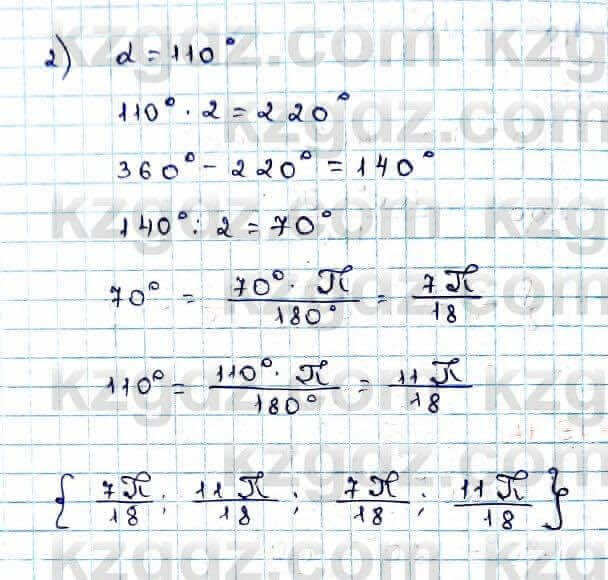 2) α = 110°
110° · 2 = 220°
360° - 220° = 140°
140° : 2 = 70°
70° = 70° · π / 180° = 7π / 18
110° = 110° · π / 180° = 11π / 18
{ 7π / 18 ; 11π / 18 ; 7π / 18 ; 11π / 18 }
kzgdz.com